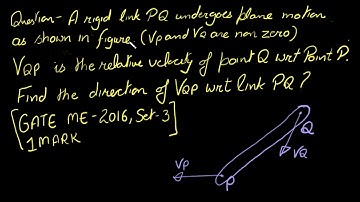 Question - A rigid link PQ undergoes plane motion
as shown in figure (VP and VQ are non zero)
VQP is the relative velocity of point Q wrt Point P.
Find the direction of VQP wrt link PQ ?
[GATE ME-2016, Set-3]
1 MARK
Q
VP
VQ
P